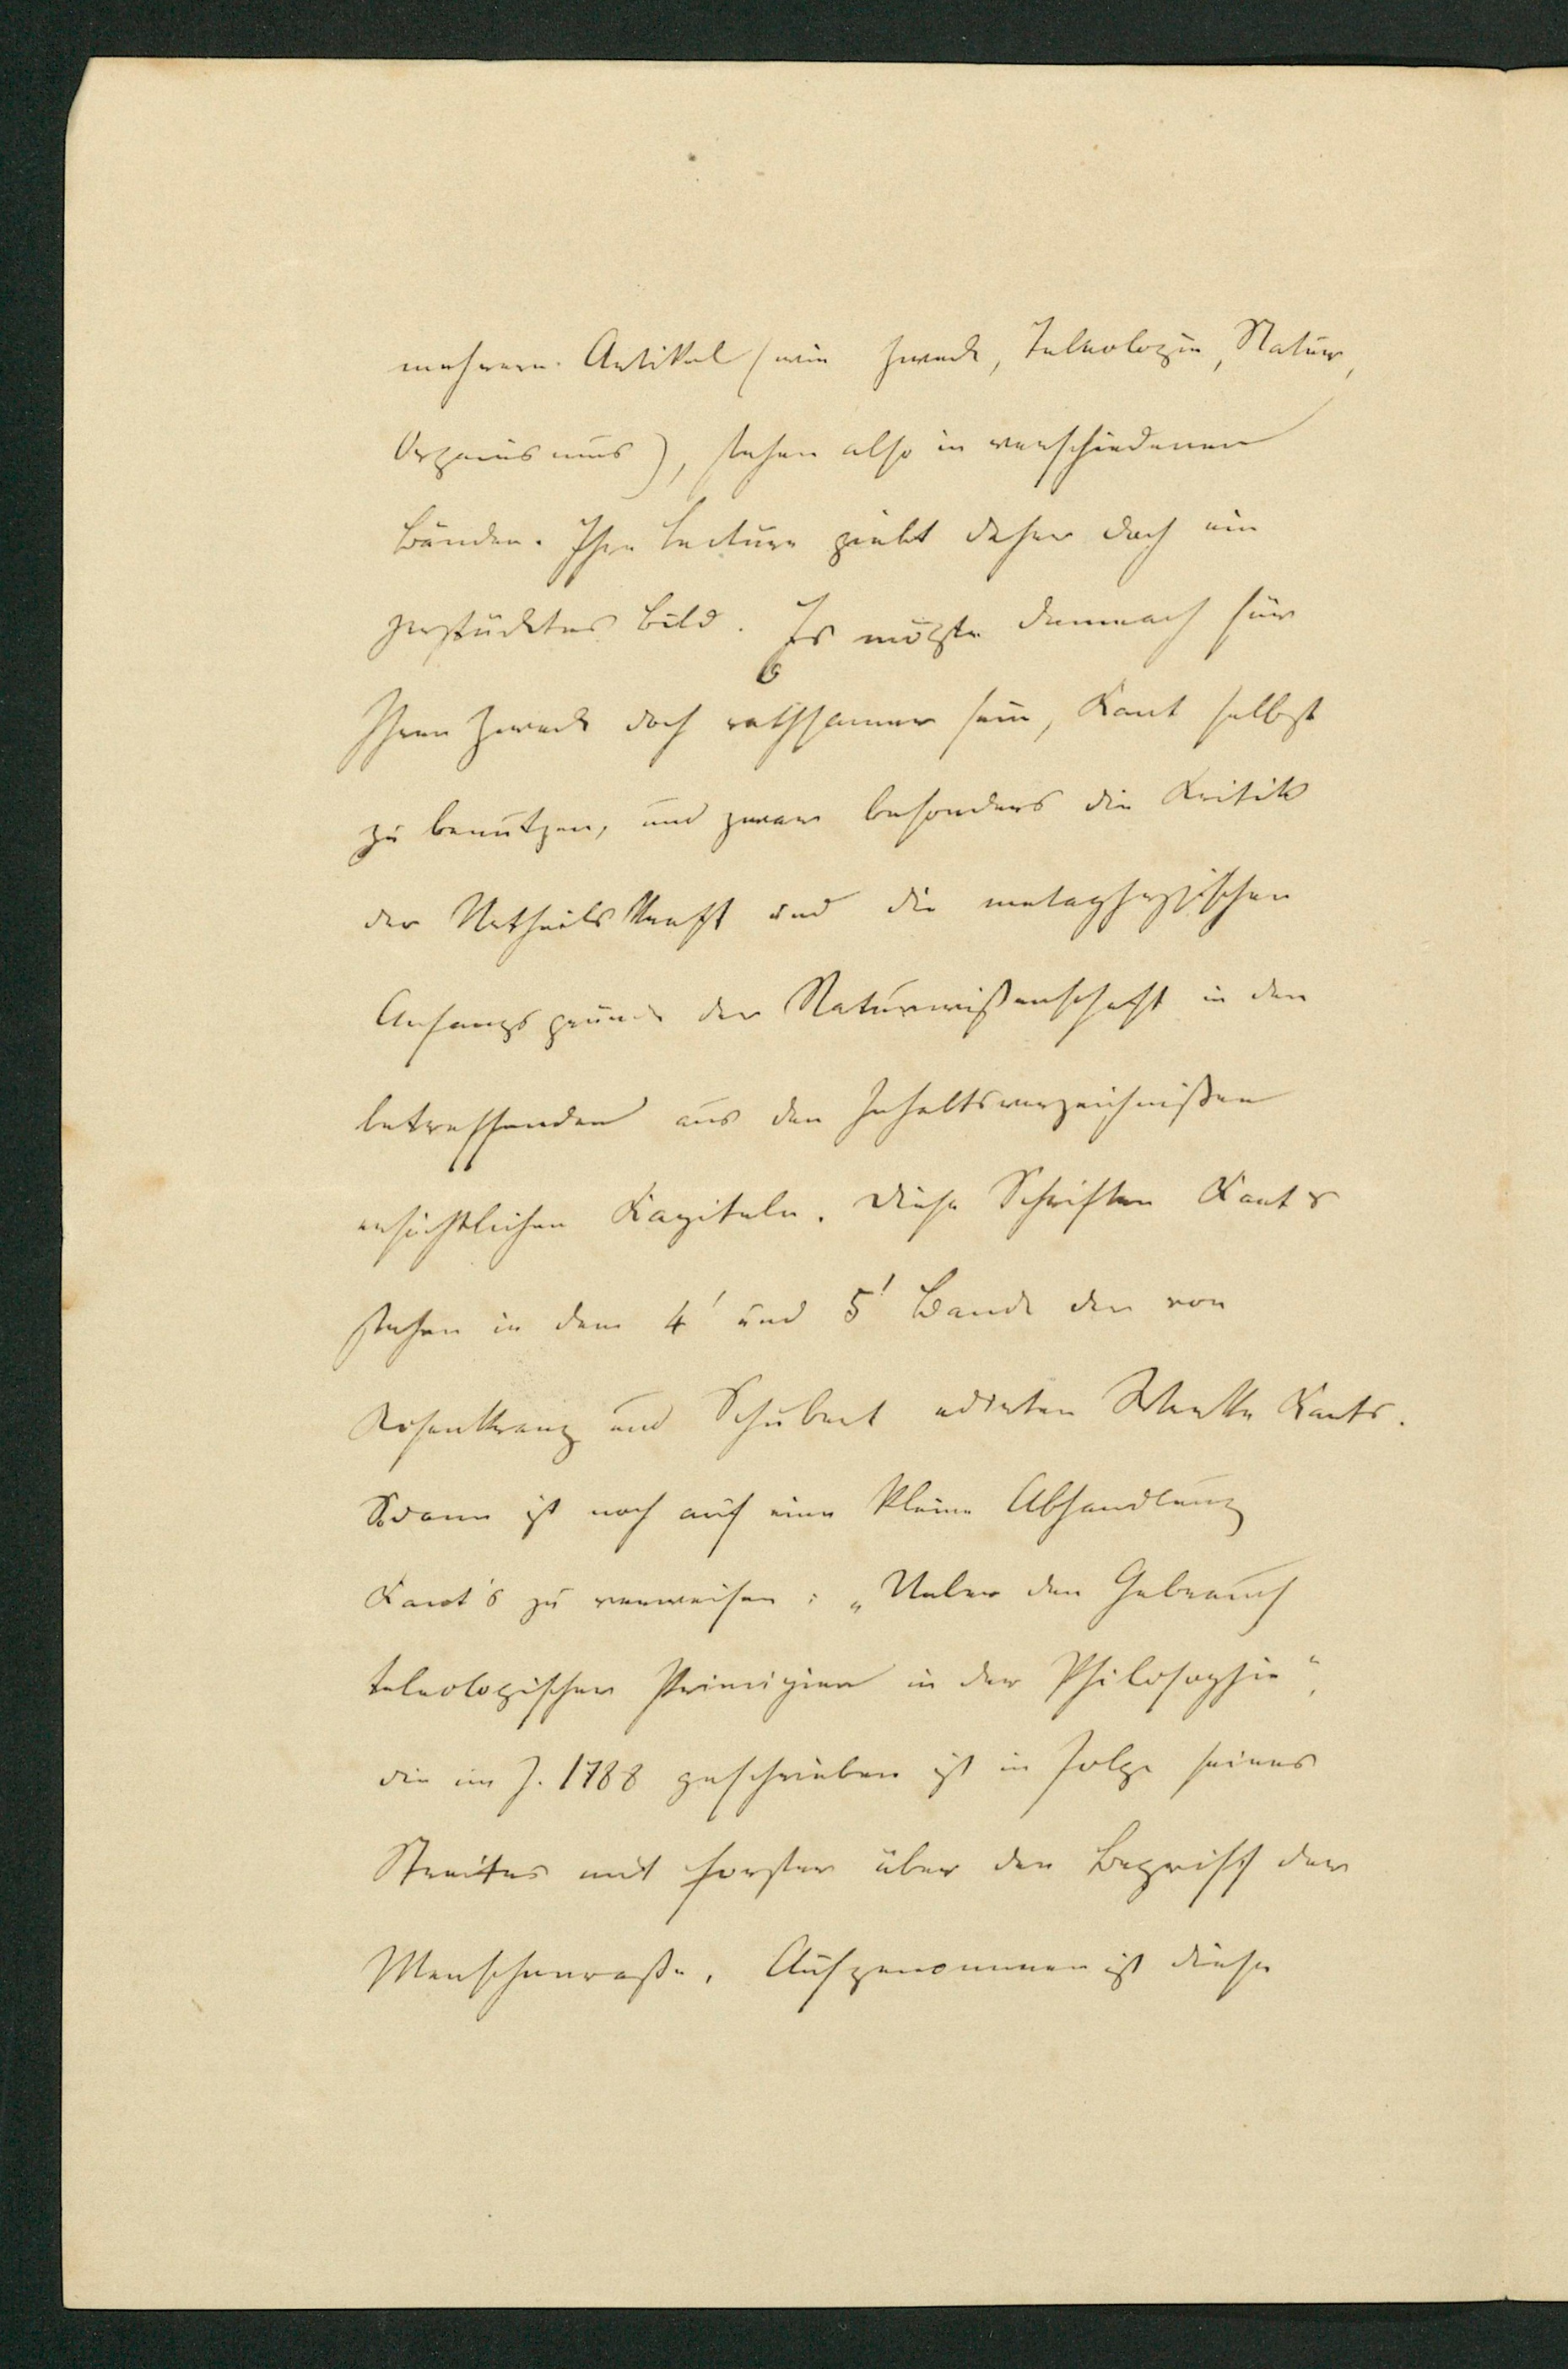 mehrere Artikel (wie Zweck, Teleologie, Natur,
Organismus), stehen also in verschiedenen
Bänden. Ihre Lecture giebt daher doch ein
zerstücktes Bild. Es müßte demnach für
Ihren Zweck doch rathsamer sein, Kant selbst
zu benutzen, und zwar besonders die Kritik
der Urtheilskraft und die metaphysischen
Anfangsgründe der Naturwißenschaft in den
betreffenden aus den Inhaltsverzeichnißen
ersichtlichen Kapiteln. Diese Schriften Kants
stehen in dem 4' und 5' Bande der von
Rosenkranz und Schubert edirten Werke Kants.
Sodann ist noch auf eine kleine Abhandlung
Kant's zu verweisen: „Ueber den Gebrauch
teleologischer Principien in der Philosophie“,
die im J. 1788 geschrieben ist in Folge seines
Streites mit Forster über den Begriff der
Menschenraße. Aufgenommen ist diese